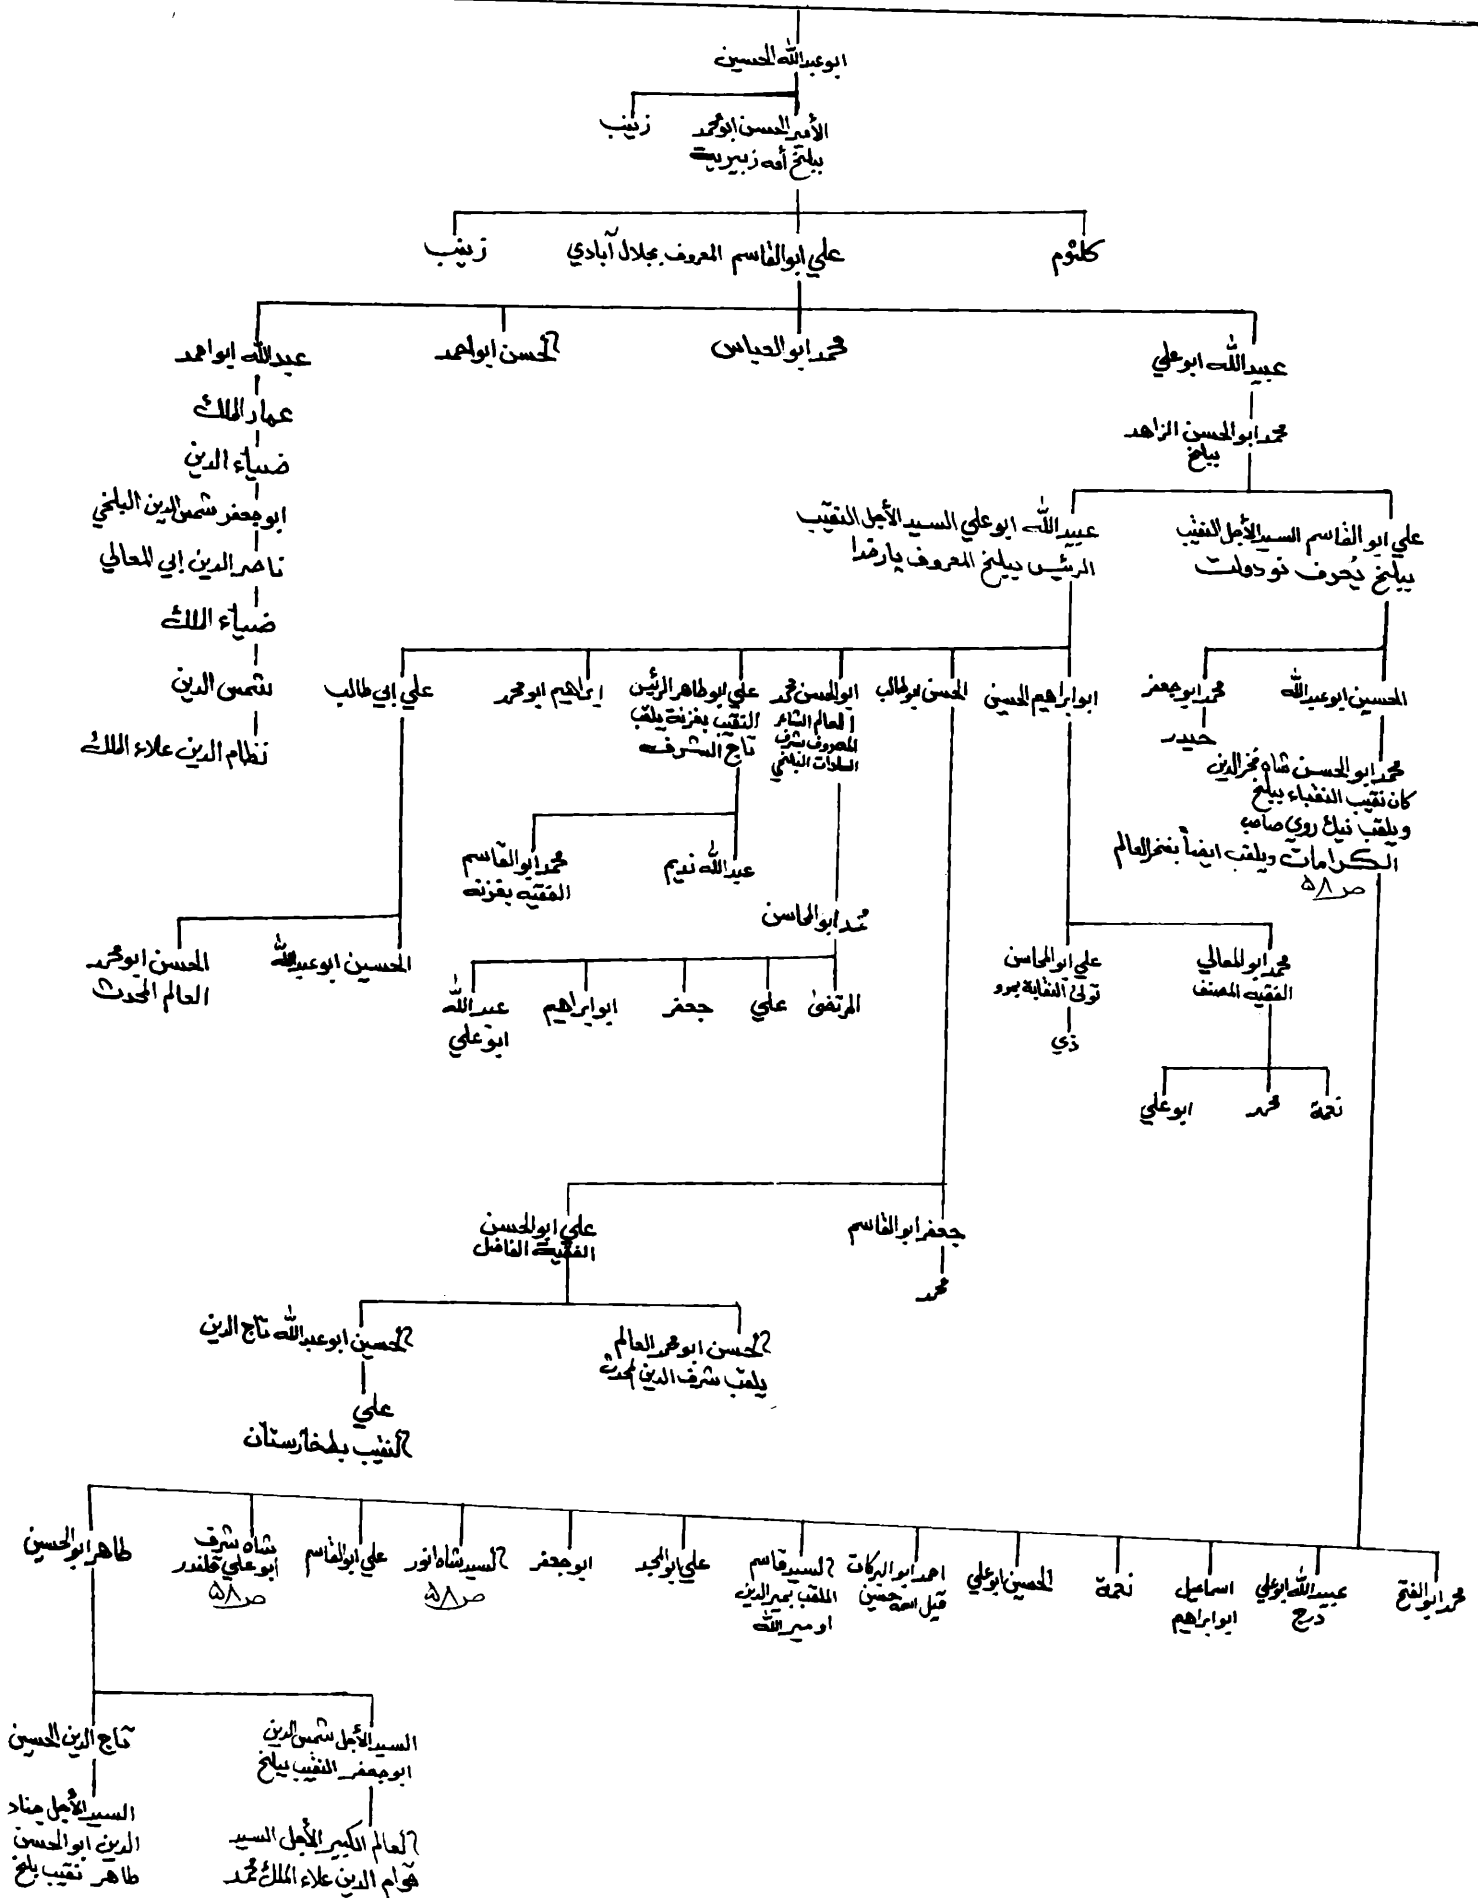 ابو عبدالله الحسين
الأمير الحسن ابو محمد
ببلخ أمه زبيرية
زينب
كلثوم
علي ابو القاسم المعروف بجلال آبادي
زينب
عبيدالله ابو علي
محمد ابو العباس
الحسن ابو احمد
عبدالله ابو احمد
عمار الملك
ضياء الدين
ابو جعفر شمس الدين البلخي
ناصر الدين ابي المعالي
ضياء الملك
شمس الدين
نظام الدين علاء الملك
محمد ابو الحسن الزاهد
ببلخ
علي ابو القاسم السيد الأجل النقيب
ببلخ يُعرف نو دولت
عبيدالله ابو علي السيد الأجل النقيب
الرئيس ببلخ المعروف يارخدا
الحسين ابو عبدالله
محمد ابو جعفر
حيدر
محمد ابو الحسن شاه فخر الدين
كان نقيب النقباء ببلخ
ويلقب نيك روي صاحب
الكرامات ويلقب ايضاً بفخر العالم
ص ٥٨
ابو ابراهيم الحسين
الحسن ابو طالب
ابو الحسن محمد
العالم الشاعر
المعروف بشرف
السادات البلخي
علي ابو طاهر الرئيس
النقيب بغزنة يلقب
تاج الشرف
ابراهيم ابو محمد
علي ابي طالب
عبدالله نديم
محمد ابو القاسم
الفقيه بغزنه
ابو المحاسن
الحسين ابو عبدالله
الحسن ابو محمد
العالم المحدث
محمد ابو المعالي
الفقيه المصنف
علي ابو المحاسن
تولى النقابة بمرو
ذي
المرتضى
علي
جعفر
ابو ابراهيم
عبدالله
ابو علي
نعمة
محمد
ابو علي
جعفر ابو القاسم
محمد
علي ابو الحسن
الفقيه الفاضل
الحسن ابو محمد العالم
يلقب شرف الدين المحدث
الحسين ابو عبدالله تاج الدين
علي
النقيب بطخارستان
محمد ابو الفتح
عبيدالله ابو علي
درج
اسماعيل
ابو ابراهيم
نعمة
الحسين ابو علي
احمد ابو البركات
قيل اسمه حسين
السيد قاسم
الملقب بمير الدين
او مير الله
علي ابو المجد
ابو جعفر
السيد شاه انور
ص ٥٨
علي ابو القاسم
شاه شرف
أبو علي قلندر
ص ٥٨
طاهر ابو الحسين
السيد الأجل شمس الدين
ابو جعفر النقيب ببلخ
العالم الكبير الأجل السيد
قوام الدين علاء الملك محمد
تاج الدين الحسين
السيد الأجل
الدين ابو الحسن
طاهر نقيب بلخ